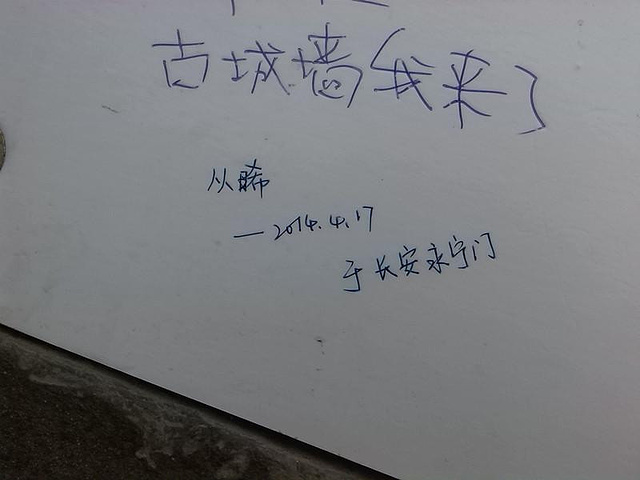 古城墙我来了
从晞
—2014.4.17
于长安永宁门